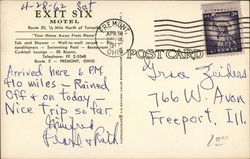 4-28-62 Sat
EXIT SIX
MOTEL
Route 53, ½ Mile North of Turnpike
"Your Home Away From Home"
Tub and Shower - Wall-to-wall carpet
conditioning - Swimming Pool - Restaurant
Cocktail Lounge - 50 Rooms.
Telephone FE 2-5548
Route 2 - FREMONT, OHIO
FREMONT
APR 28
PM
1962
OHIO
POST CARD
Arrived here 6 P.M.
410 miles - Rained
Off & on today -
Nice trip so far.
& Ruth
Grace Zeiders
766 W Avon
Freeport, Ill.
1.00